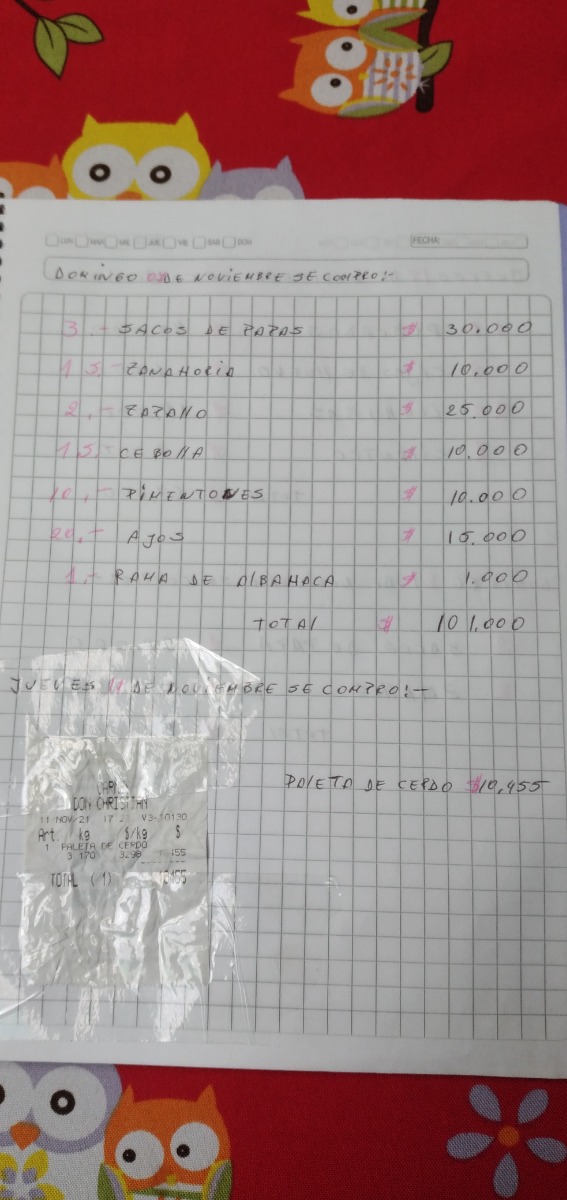 LUN MAR MIE JUE VIE SAB DOM FECHA:
DOMINGO DE NOVIEMBRE SE COMPRO:-
3.- SACOS DE PAPAS $ 30.000
1 S.- ZANAHORIA $ 10.000
2.- ZAPALLO $ 25.000
1 S.- CEBOLLA $ 10.000
10.- PIMENTONES $ 10.000
20.- AJOS $ 15.000
1.- RAMA DE ALBAHACA $ 1.000
TOTAL $ 101.000
JUEVES 11 DE NOVIEMBRE SE COMPRO:-
PALETA DE CERDO $10,455
DON CHRISTIAN
11 NOV 21 V3-10130
Art. kg $/kg $
1 PALETA DE CERDO
3 170 3298
TOTAL (1)